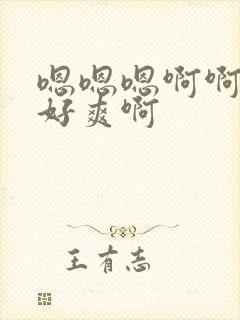 嗯嗯嗯啊啊
好爽啊
王有志